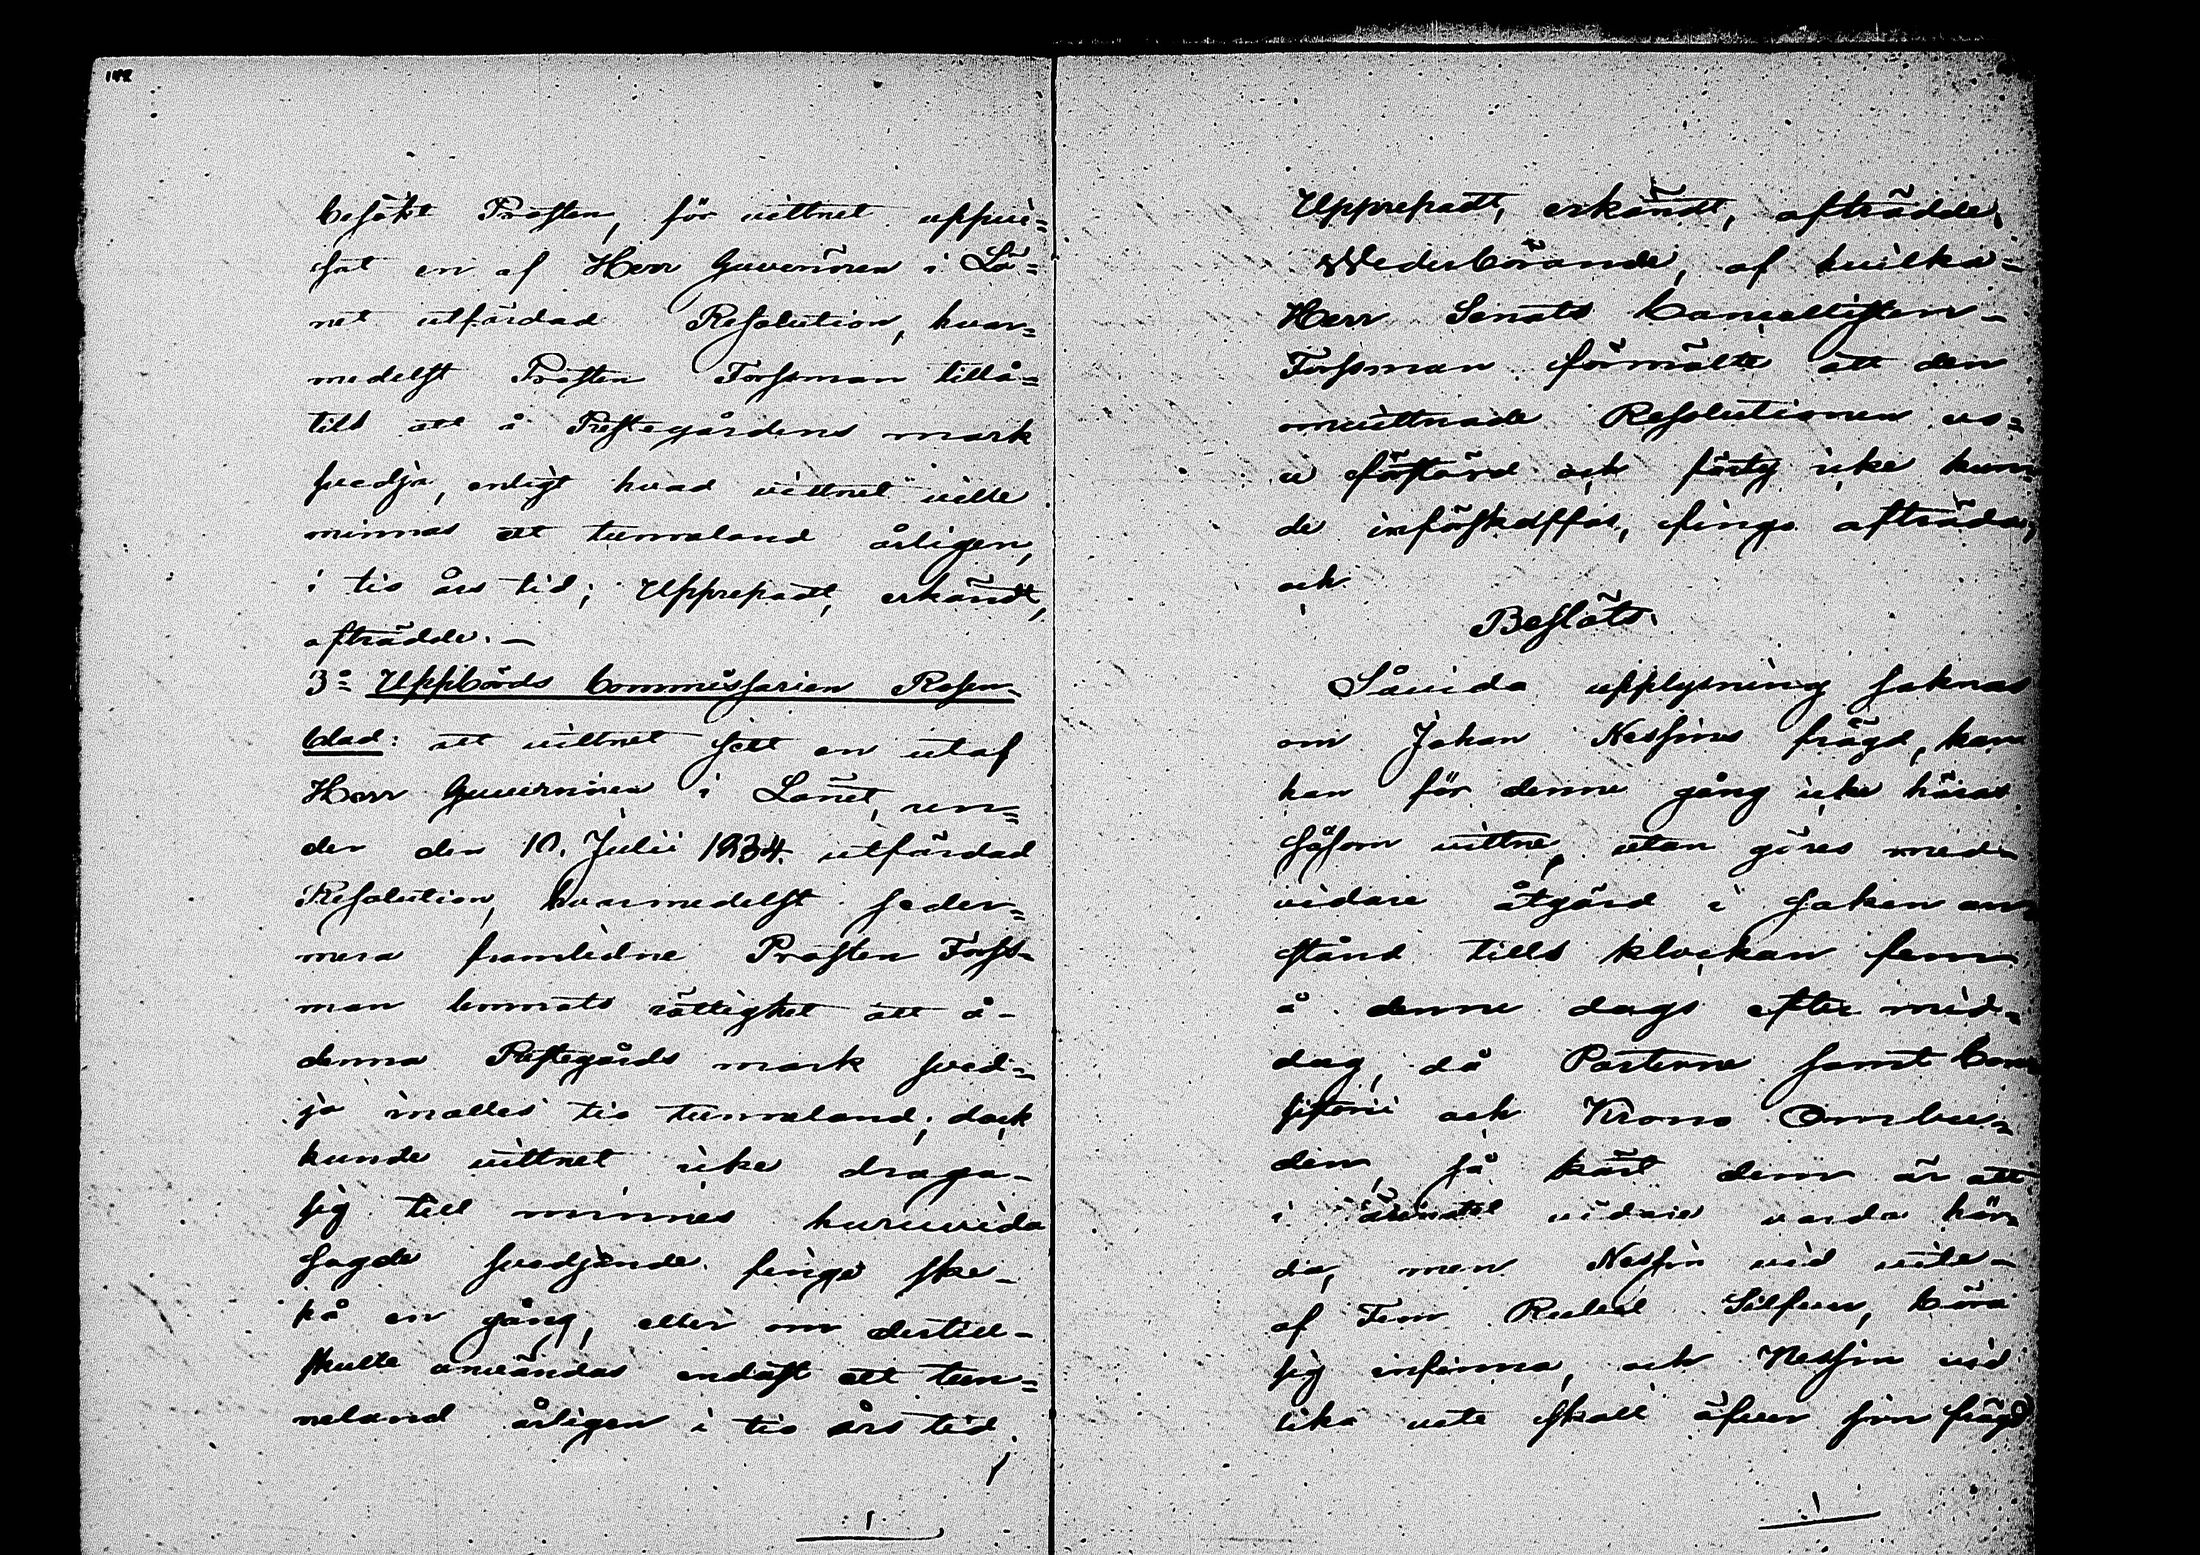 142
besökt Prosten, för vittnet uppvi=
sat en af Herr Guvernören i Lä=
net utfärdad Resolution, hvar=
medelst Prosten Forssman tillå=
tits att å Prestegårdens mark
svedja, enligt hvad vittnet ville
minnas ett tunnaland årligen,
i tio års tid; Upprepadt, erkändt,
afträdde. —
3o= Uppbörds Commissarien Rosen=
blad: att vittnet sett en utaf
Herr Guvernören i Länet, un=
der den 10. Julii 1834. utfärdad
Resolution, hvarmedelst seder=
mera framlidne Prosten Forss=
man lemnats rättighet att å-
denna Prestegårds mark sved=
ja inalles tio tunnaland; dock
kunde vittnet icke draga-
sig till minnes huruvida
sagde svedjande finge ske-
på en gång, eller om dertill-
skulle användas endast ett tun=
neland årligen i tio års tid;
Upprepadt, erkändt, afträdde.
Wederbörande, af hvilka-
Herr Senats Cancellisten-
Forssman förmälte att den
omvittnade Resolutionen vo=
re förstörd och förty icke kun=
de införskaffas, fingo afträda,
och
Beslöts.
Såvida upplysning saknas
om Johan Nessins frägd, kan
han för denne gång icke höras
såsom vittne, utan göres med-
vidare åtgärd i saken an=
stånd tills klockan fem
å denne dags efter mid=
dag, då Parterne samt Con
sistorii och Krono Ombu=
den, så kärt dem är att
i ärendet vidare varda hör=
da, men Nessin vid vite-
af Fem Rubel Silfver, böra
sig infinna, och Nessin vid
lika vite skall äfven sin frägd